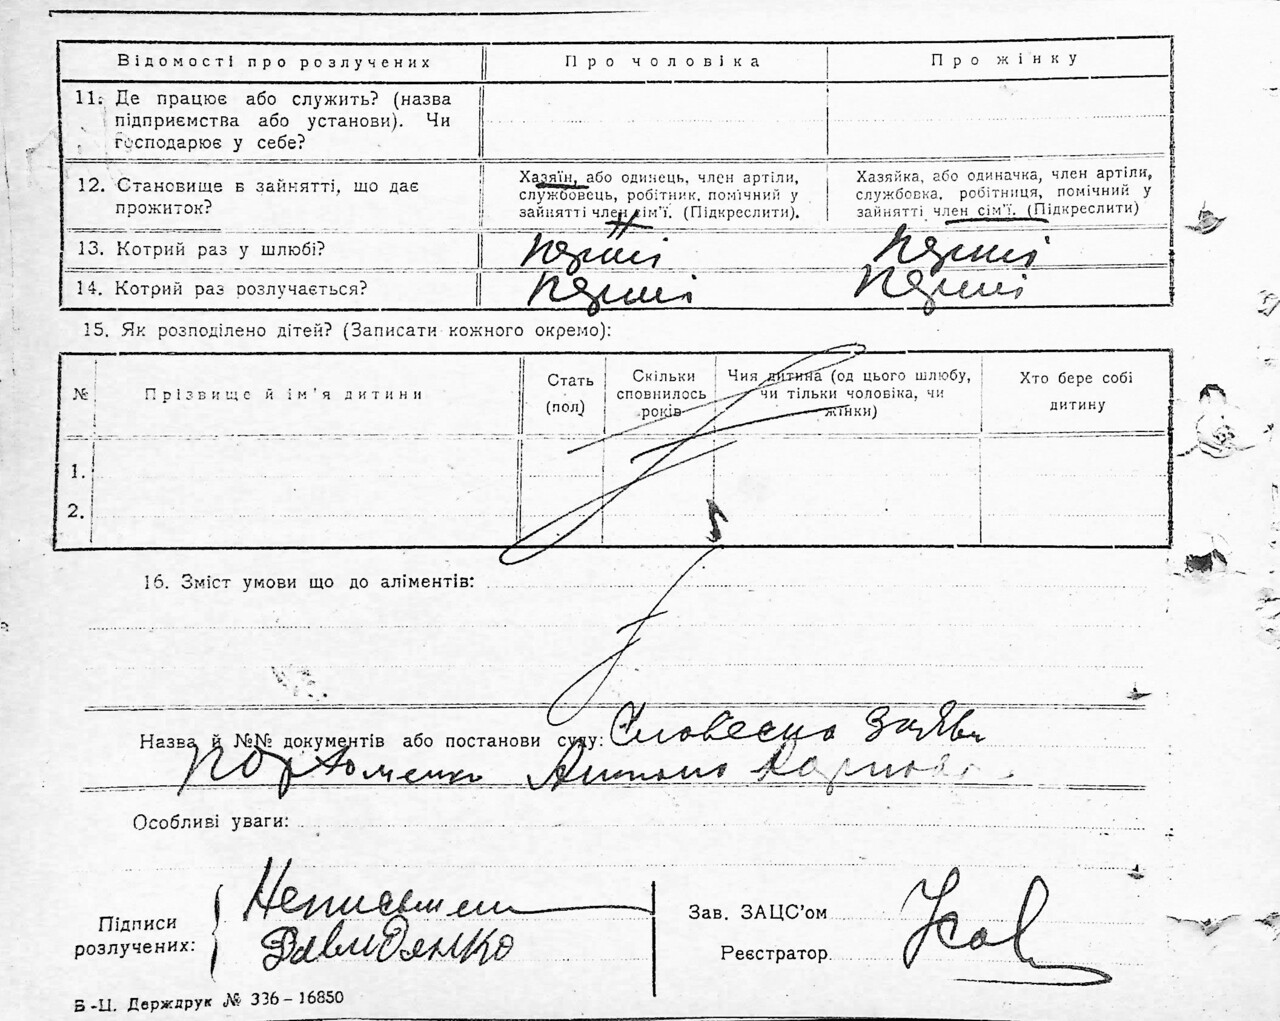 Відомості про розлучених Про чоловіка Про жінку
11. Де працює або служить? (назва
підприємства або установи). Чи
господарює у себе?
12. Становище в зайнятті, що дає
прожиток?
Хазяїн, або одинець, член артіли,
службовець, робітник, помічний у
зайнятті член сім'ї. (Підкреслити).
Хазяйка, або одиначка, член артіли,
службовка, робітниця, помічний у
зайнятті член сім'ї. (Підкреслити)
13. Котрий раз у шлюбі? перший перший
14. Котрий раз розлучається? перший перший
15. Як розподілено дітей? (Записати кожного окремо):
№ Прізвище й ім'я дитини
Стать
(пол)
Скільки
сповнилось
років
Чия дитина (од цього шлюбу,
чи тільки чоловіка, чи
жінки)
Хто бере собі
дитину
1.
2.
16. Зміст умови що до аліментів:
Назва й №№ документів або постанови суду: Словесна заява
Особливі уваги:
Підписи
розлучених:
Неписьмен
Давидянко
Зав. ЗАЦС'ом
Реєстратор
Б-Ц. Держдрук № 336-16850